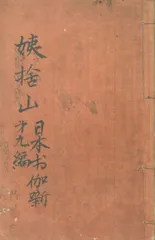 姨捨山
日本お伽噺
第九編